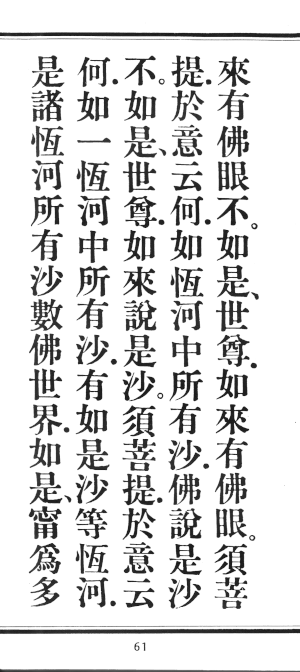 來有佛眼不。如是、世尊.如來有佛眼。須菩
提.於意云何.如恆河中所有沙.佛說是沙
不。如是、世尊.如來說是沙。須菩提.於意云
何.如一恆河中所有沙.有如是沙等恆河.
是諸恆河所有沙數佛世界.如是、甯爲多
61